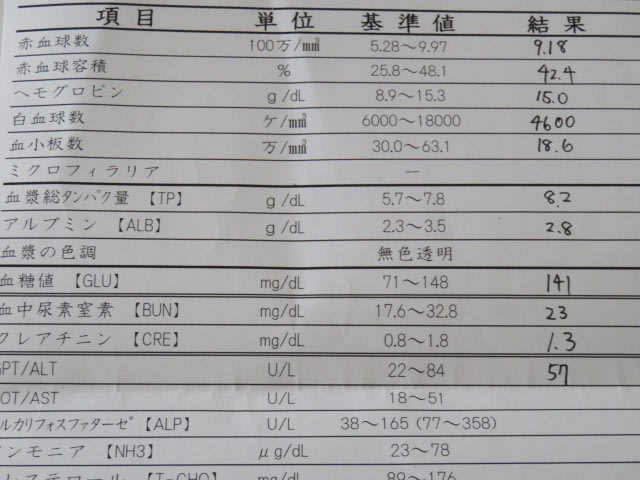 項目 単位 基準値 結果
赤血球数 100万/mm³ 5.28〜9.97 9.18
赤血球容積 % 25.8〜48.1 42.4
ヘモグロビン g/dL 8.9〜15.3 15.0
白血球数 ケ/mm³ 6000〜18000 4600
血小板数 万/mm³ 30.0〜63.1 18.6
ミクロフィラリア —
血漿総タンパク量【TP】 g/dL 5.7〜7.8 8.2
アルブミン【ALB】 g/dL 2.3〜3.5 2.8
血漿の色調 無色透明
血糖値【GLU】 mg/dL 71〜148 141
血中尿素窒素【BUN】 mg/dL 17.6〜32.8 23
クレアチニン【CRE】 mg/dL 0.8〜1.8 1.3
GPT/ALT U/L 22〜84 57
OT/AST U/L 18〜51
ルカリフォスファターゼ【ALP】 U/L 38〜165 (77〜358)
ンモニア【NH3】 μg/dL 23〜78
レステロール【T-CHO】 mg/dL 89〜176